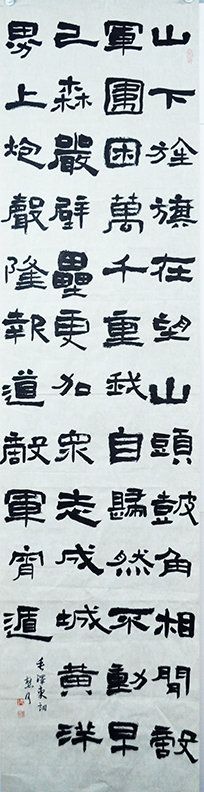 山下旌旗在望山頭鼓角相聞敵
軍圍困萬千重我自歸然不動早
已森嚴壁壘更加衆志成城黃洋
界上炮聲隆報道敵軍宵遁
毛澤東詞